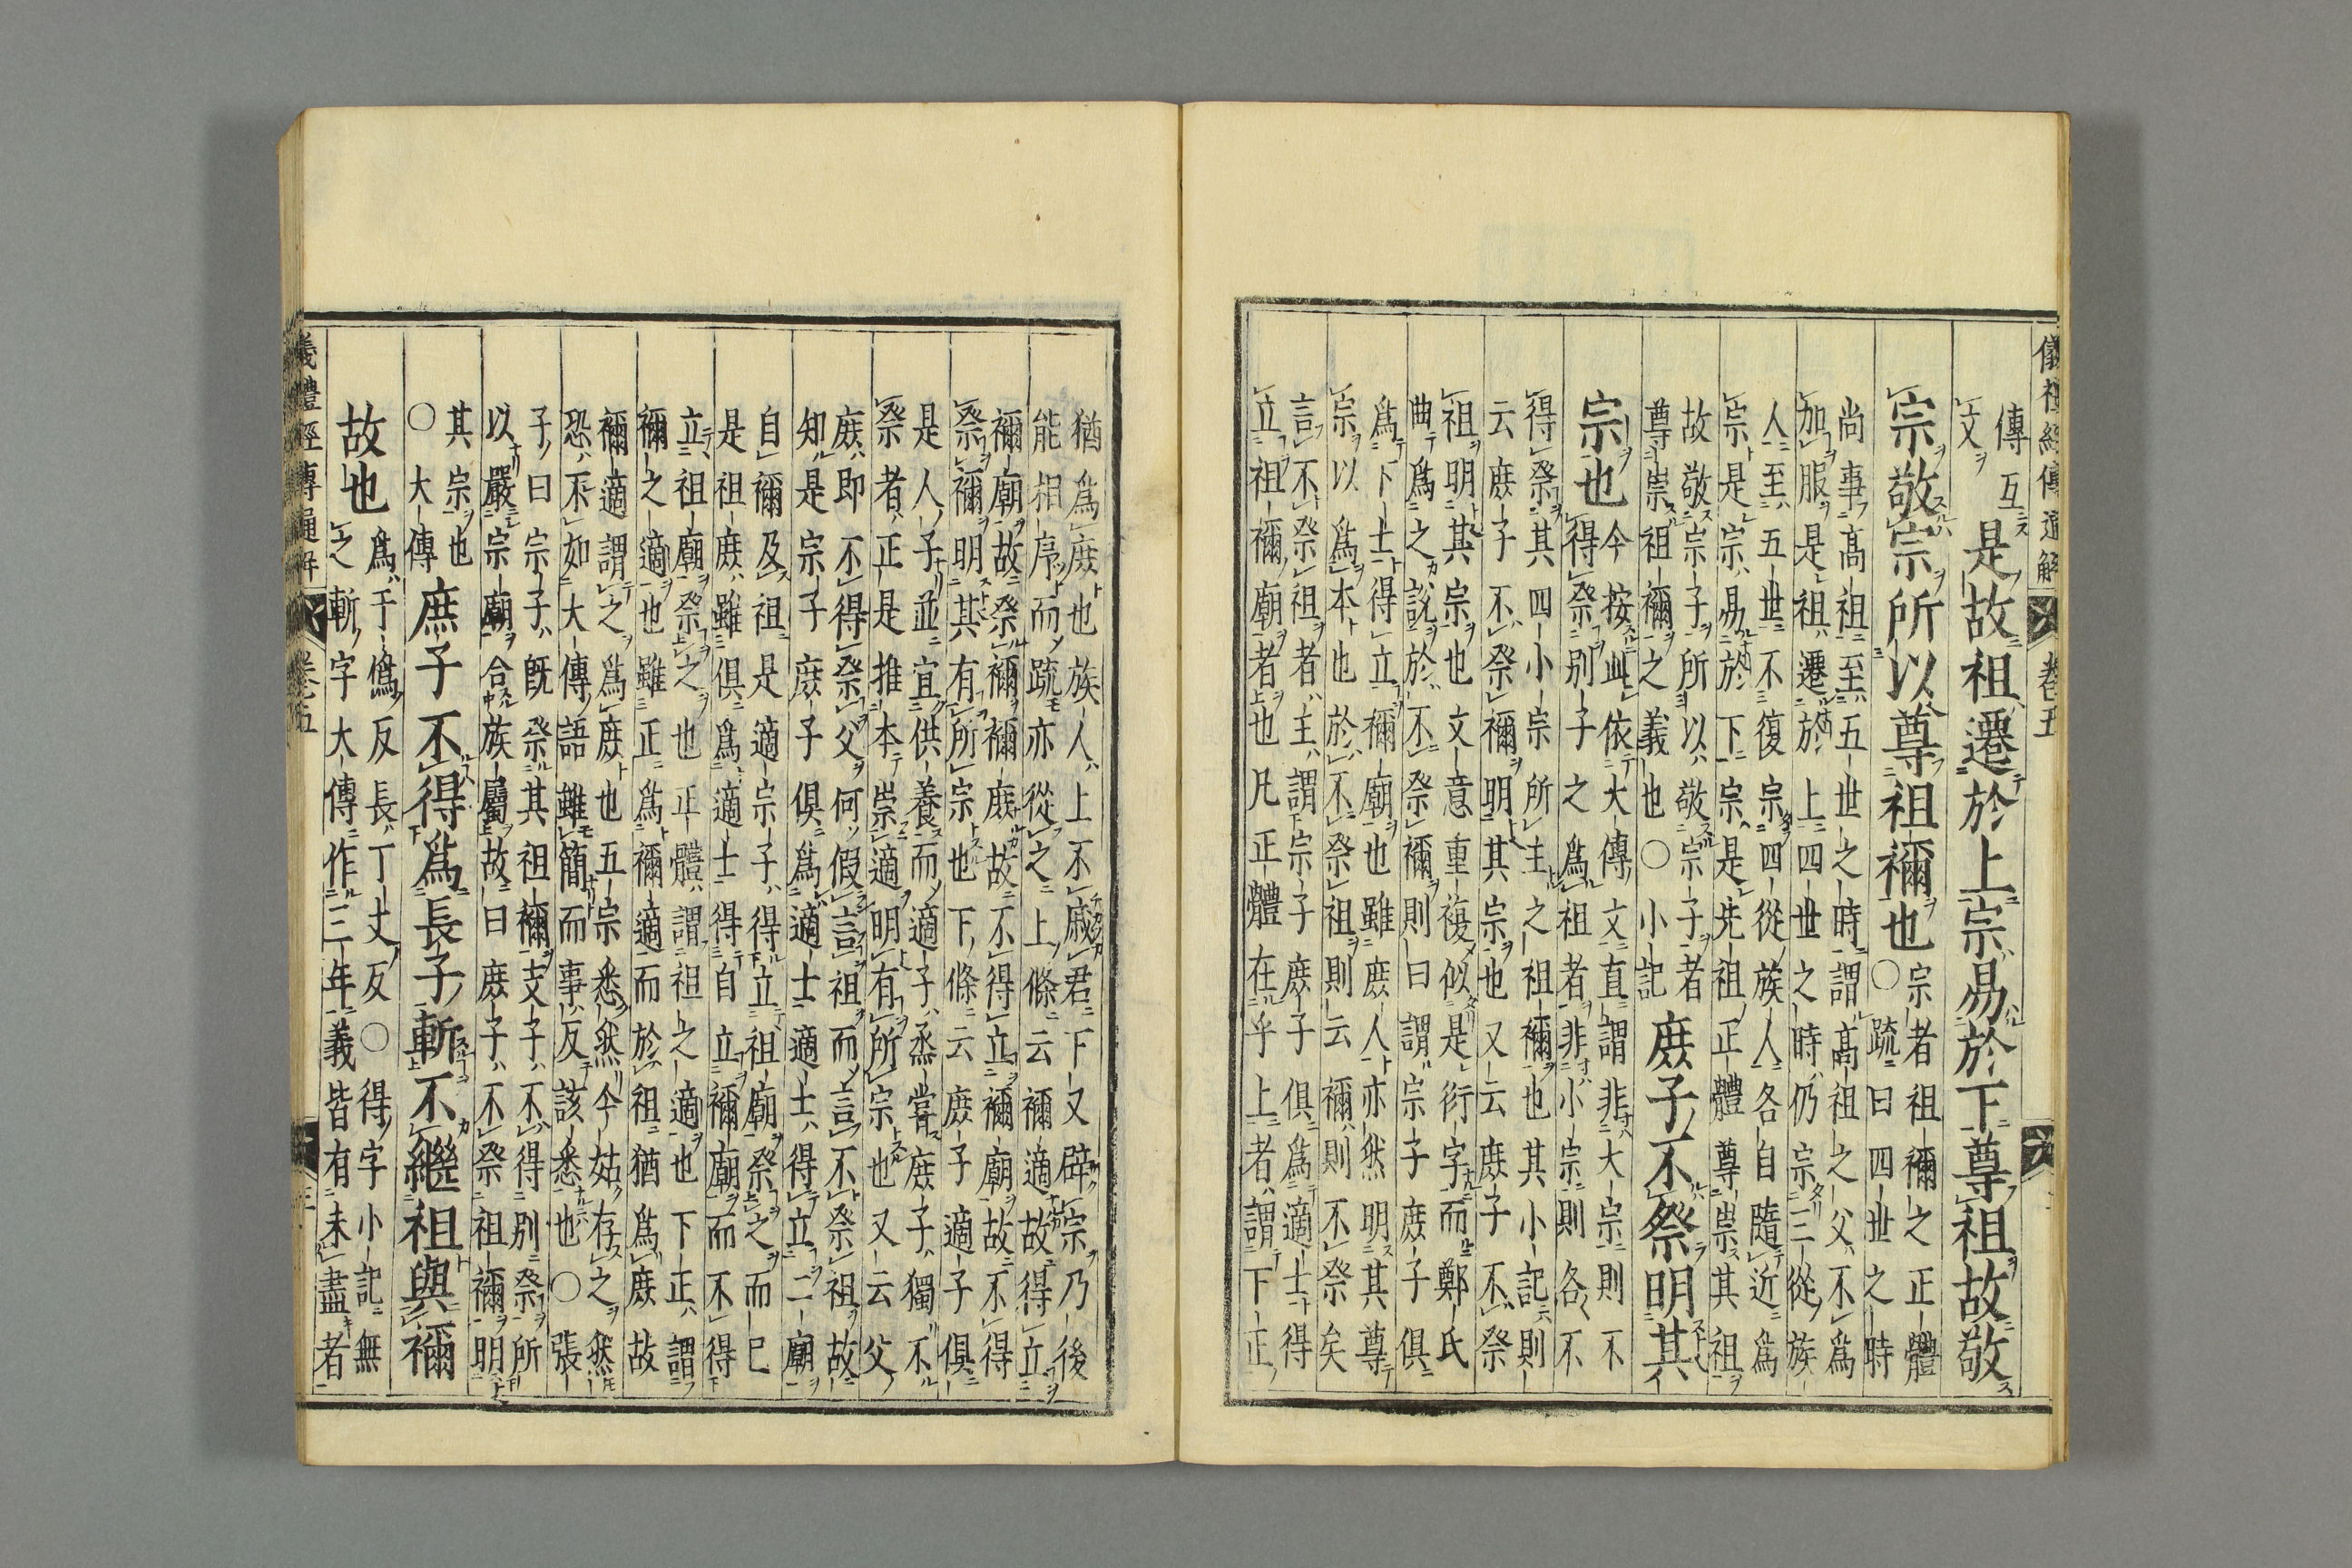 儀禮經傳通解 卷五
傳互
文
是故祖遷於上宗易於下尊祖故敬
宗敬宗所以尊祖禰也
宗者祖禰之正體
○疏曰四世之時
尚事高祖至五世之時謂高祖之父不爲
加服是祖遷於上四世之時仍宗三從族
人至五世不復宗四從族人各自隨近爲
宗是宗易於下宗是先祖正體尊崇其祖
故敬宗子所以敬宗子者
尊崇祖禰之義也○小記
庶子不祭明其
宗也
今按此依大傳文直謂非大宗則不
得祭别子之爲祖者非小宗則各不
得祭其四小宗所主之祖禰也其小記則
云庶子不祭禰明其宗也又云庶子不祭
祖明其宗也文意重複似是衍字而鄭氏
曲爲之說於不祭禰則曰謂宗子庶子俱
爲下士得立禰廟也雖庶人亦然明其尊
宗以爲本也於不祭祖則云禰則不祭矣
言不祭祖者主謂宗子庶子俱爲適士得
立祖禰廟者也凡正體在乎上者謂下正
猶爲庶也族人上不戚君下又辟宗乃後
能相序而疏亦從之上條云禰適故得立
禰廟故祭禰禰庶故不得立禰廟故不得
祭禰明其有所宗也下條云庶子適子俱
是人子並宜供養而適子烝嘗庶子獨不
祭者正是推本崇適明有所宗也又云父
庶即不得祭父何假言祖而言不祭祖故
知是宗子庶子俱爲適士適士得立二廟
自禰及祖是適宗子得立祖廟祭之而己
是祖庶雖俱爲適士得自立禰廟而不得
立祖廟祭之也正體謂祖之適也下正謂
禰之適也雖正爲禰適而於祖猶爲庶故
禰適謂之爲庶也五宗悉然今姑存之然
恐不如大傳語雖簡而事反該悉也○張
子曰宗子既祭其祖禰支子不得别祭所
以嚴宗廟合族屬故曰庶子不祭祖禰明
其宗也
○大傳
庶子不得爲長子斬不繼祖與禰
故也
爲于僞反長丁丈反○得字小記無
之斬字大傳作三年義皆有未盡者
儀禮經傳通解 卷五